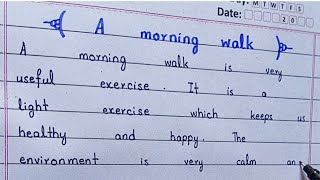 M T W T F S
Date: 20
A morning walk
A morning walk is very
useful exercise. It is a
light exercise which keeps us
healthy and happy The
environment is very calm an